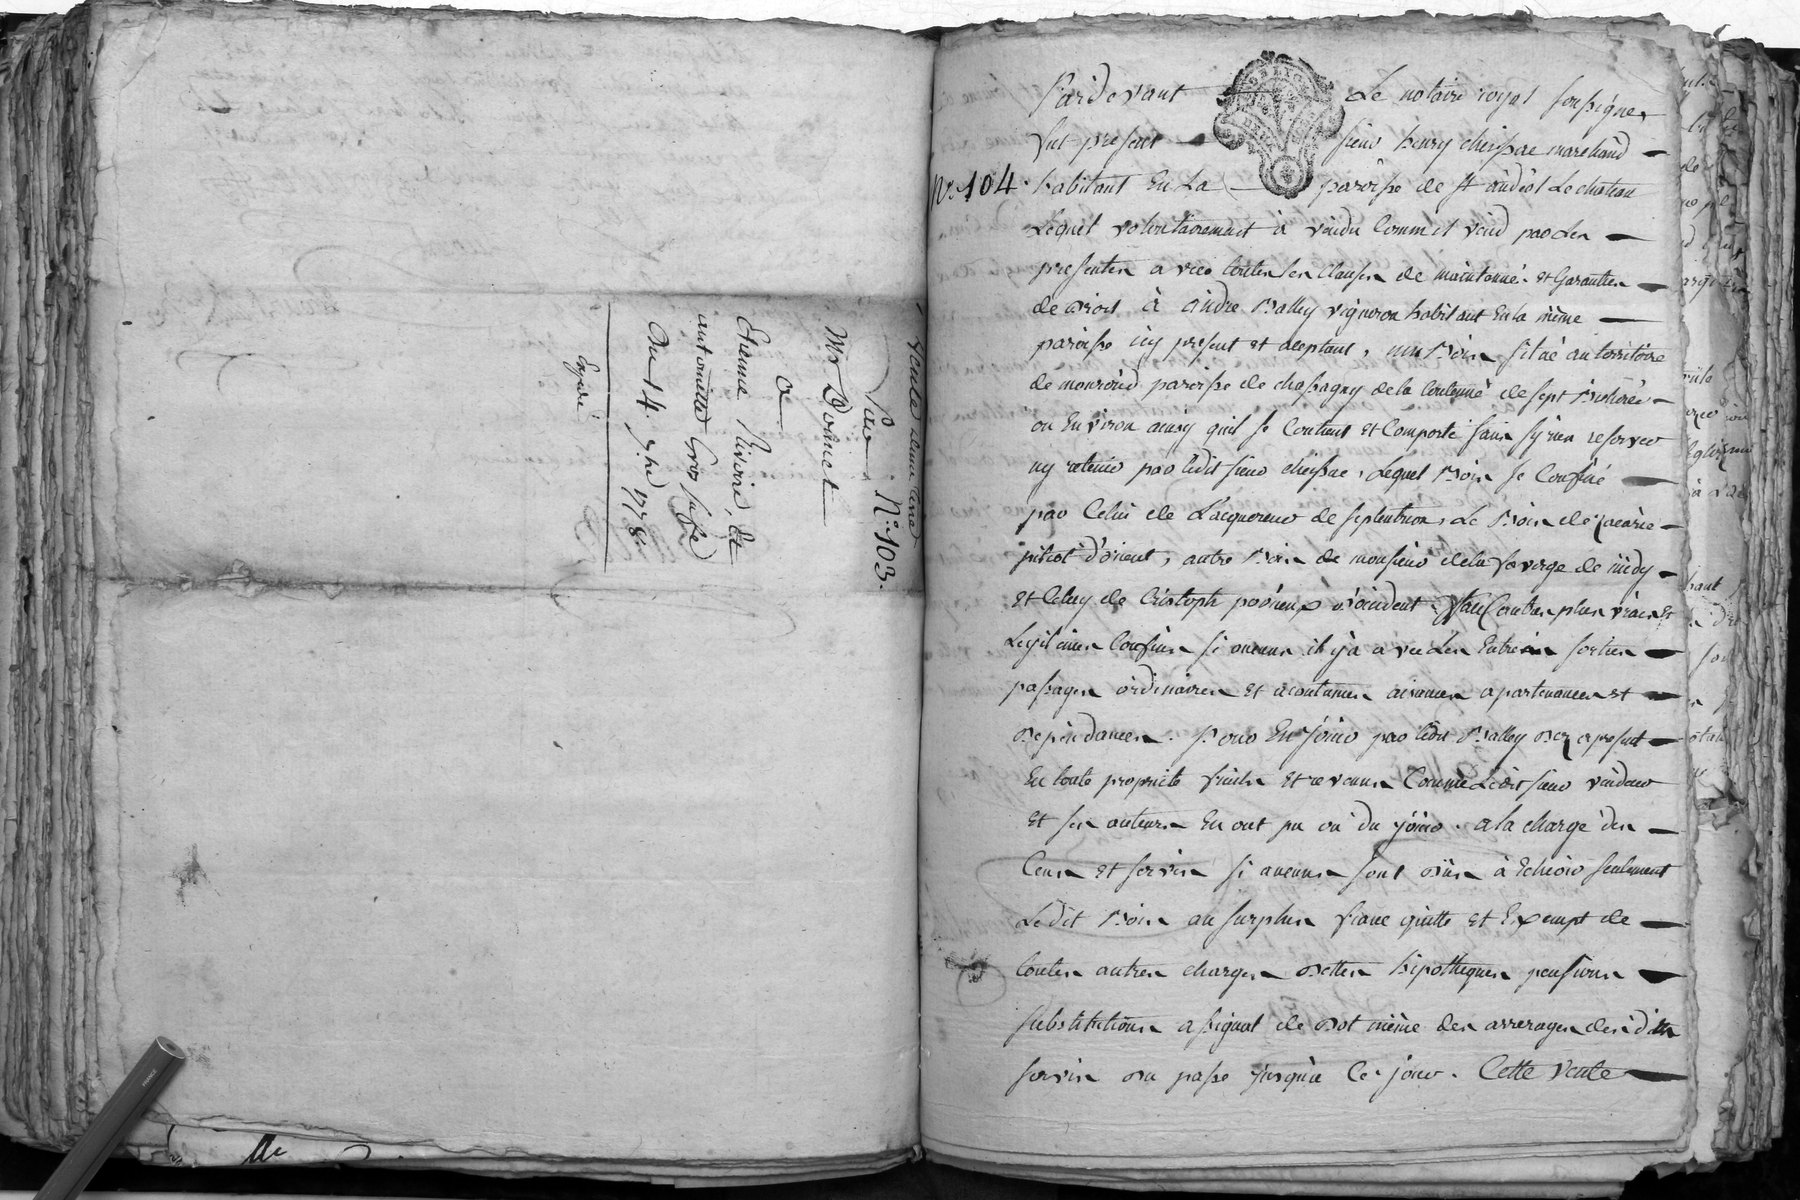 vente d'une terre
Par N.° 103.
Mr Donnet
a
Etienne Rivoire, et
antoinette Gros sa fe
Du 14. 7.bre 1778.
Expedié
N.° 104.
Pardevant Le notaire royal soussigné,
fut present sieur henry cheissac marchand
habitant En La paroisse de st andéol Le chateau
Lequel volontairement à vendu Comm'il vend par Les
presentes avec toutes les Clauses de maintenüe et Garanties
de droit à andré Valley vigneron habitant En la même
paroisse icy present et aceptant, un bois situé au territoire
de paroisse de chassagny de la Contenüe de sept bicherées
ou Environ ainsy quil se Contient et Comporte sans sy rien reserver
ny retenir par ledit sieur cheissac, Lequel bois se Confine
par Celui de L'acquereur de septentrion, Le bois de
pitiot d'orient, autre bois de monsieur dela faverge de midy
Et Celuy de Cristoph d'occident, sauf touttes plus vraies et
Legitimes Confins si aucuns il y à avec Les Entrées sorties
passages ordinaires et acoutumés aisances apartenances et
dependances. Pour En jouir par ledit Valley des apresent
En toute proprieté fruits et revenus Comme Ledit sieur vendeur
et ses auteurs En ont pu ou du joüir. a la charge des
Cens et servis si aucuns sont dus à Echeoir seulement
Ledit bois au surplus franc quitte et Exempt de
toutes autres charges dettes hipotheques pensions
substitutions assignat de dot même des arrerages desdits
servis du passé jusqu'à Ce jour. Cette vente